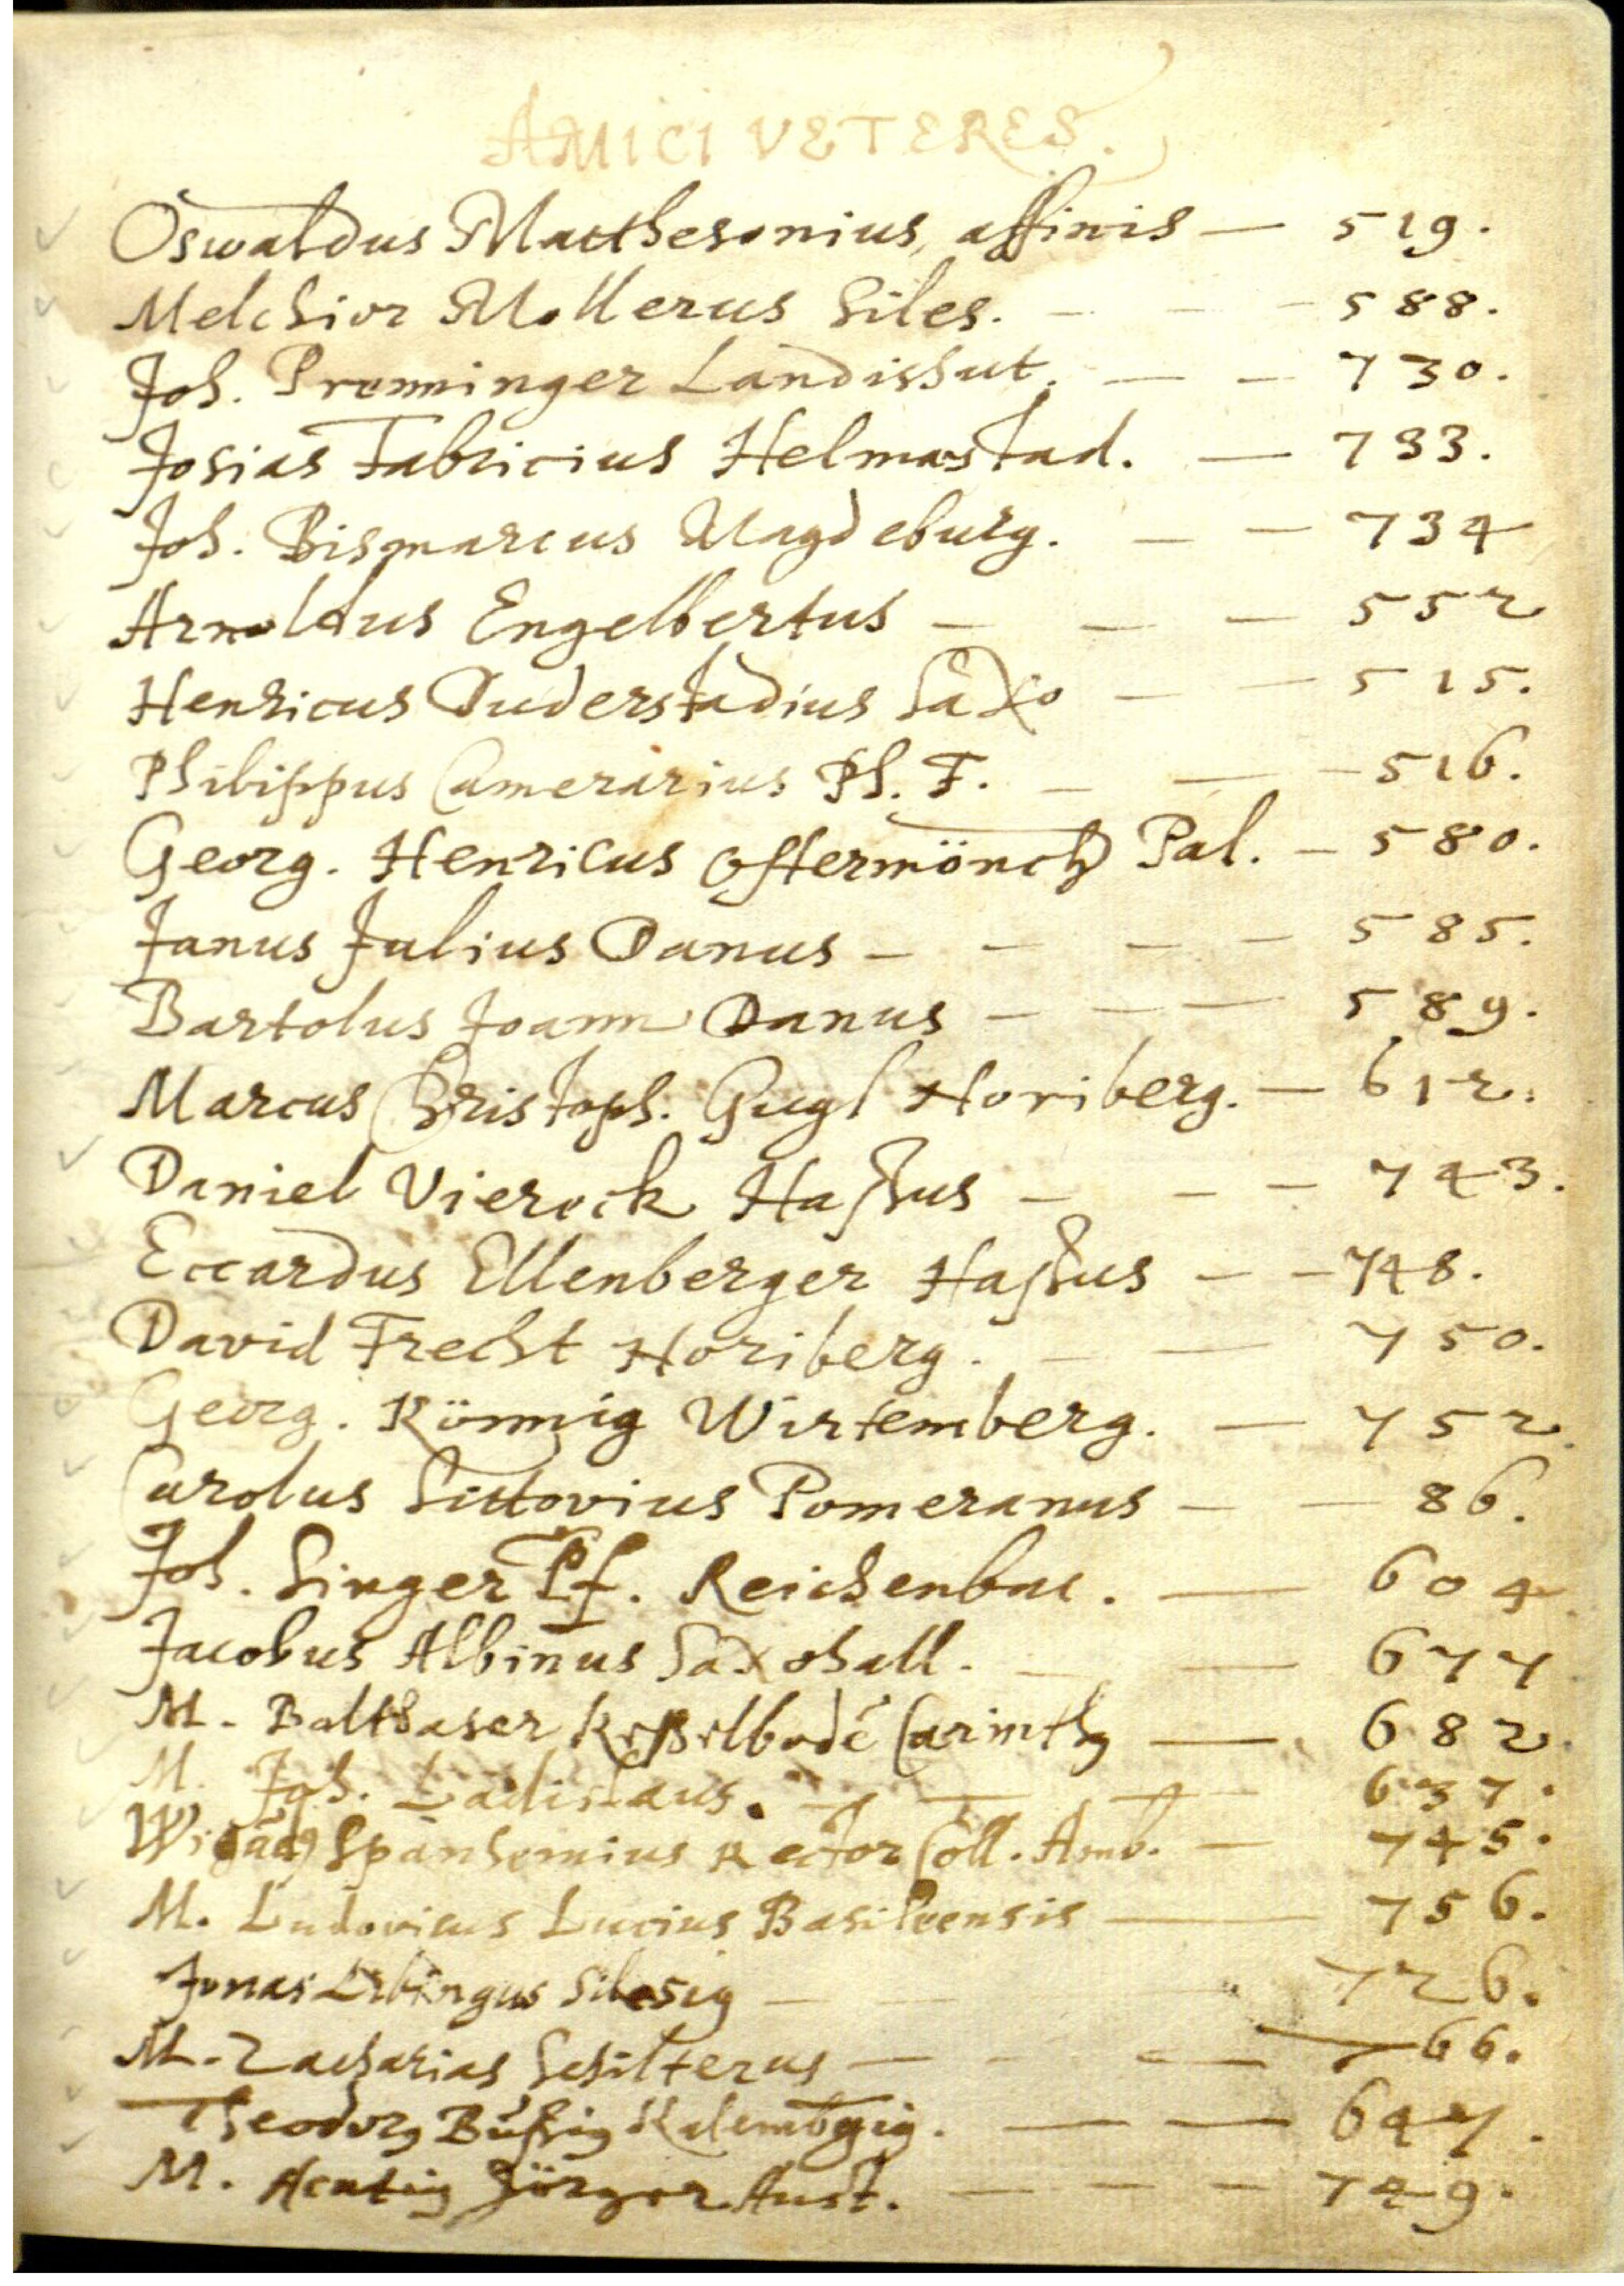 AMICI VETERES.
Oswaldus Matthesonius, affinis — 519.
Melchior Mollerus Siles. — — — 588.
Joh. Premminger Landishut. — — 730.
Josias Fabricius Helmastad. — 733.
Joh. Bismarcus Magdeburg. — — 734
Arnoldus Engelbertus — — — 552
Henricus Duderstadius Saxo — — 515.
Philippus Camerarius Ph. F. — — — 516.
Georg. Henricus Ostermönch Pal. — 580.
Janus Julius Danus — — — — 585.
Bartolus Joann Danus — — — 589.
Marcus Christoph. Gugl Noriberg. — 612.
Daniel Vierock Haßus — — — 743.
Eccardus Ellenberger Haßus — — 748.
David Frecht Noriberg. — — 750.
Georg. Könnig Wirtemberg. — 752.
Carolus Sittovius Pomeranus — — 86.
Joh. Singer Pf. Reichenbac. — 604
Jacobus Albinus Saxohall. — — 677
M. Balthaser Carinth — 682.
M. Joh. Ladislaus. — — — 637.
Spanhemius Rector Coll. Amb. — 745.
M. Ludovicus Lucius Basileensis — 756.
Jonas Silesig — — — 726.
M. Zacharias Schilterus — — — 766.
Theodorg — — 647.
M. Jörger Aust. — — — 749.